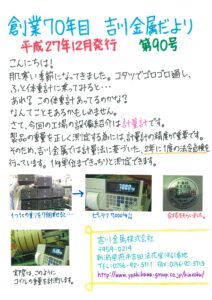 創業70年目 吉川金属だより
平成27年12月発行 第90号
こんにちは!
肌寒い季節になってきました。コタツでゴロゴロ過し、
ふと体重計に乗ってみると…
あれ?この体重計あってるのかな?
なんてこともあるかもしれません。
さて、今回の工場の設備紹介は計量計です。
製品の重量を正しく測定する為には、計量計の精度が重要です。
そのため、吉川金属では計量法に基づいた、2年に1度の法令点検を
行っています。1kg単位まできっちりと測定できます。
ピッタリ7,000kg!
合格をもらいました。
実際は、このように
コイルの重量を計測します。
吉川金属株式会社
〒959-0219
新潟県燕市吉田法花堂1961番地
TEL:0256-92-3111 FAX:0256-92-3713